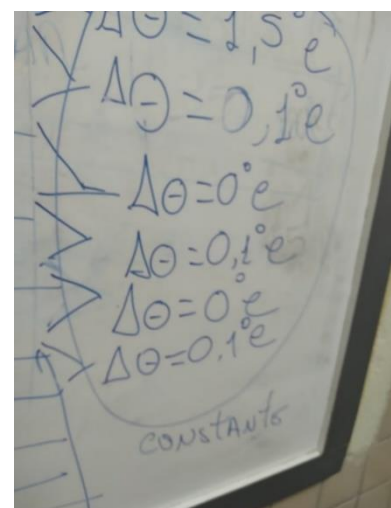 ΔΘ = 1,5°C
ΔΘ = 0,1°C
ΔΘ = 0°C
ΔΘ = 0,1°C
ΔΘ = 0°C
ΔΘ = 0,1°C
CONSTANTE